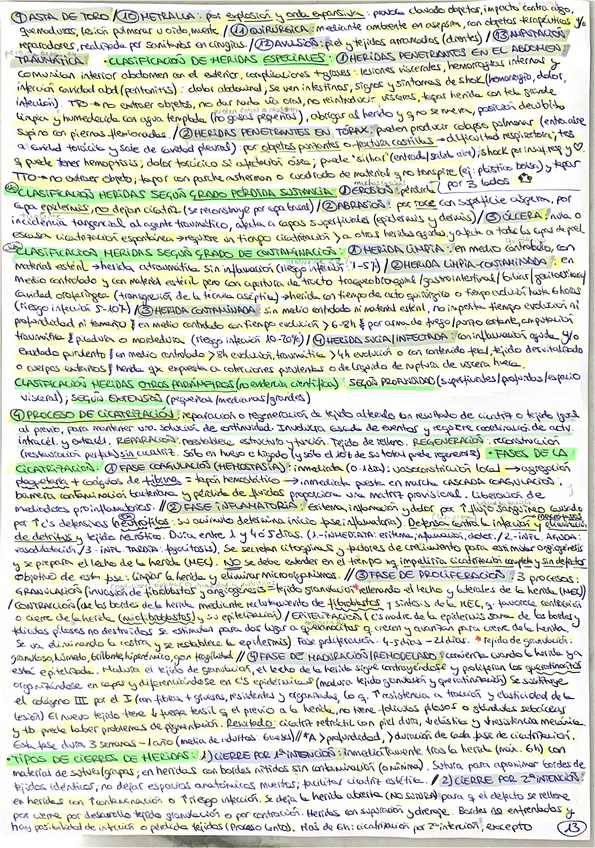 ⑨ ASTA DE TORO / ⑩ METRALLA: por explosión y onda expansiva: provoca clavado objetos, impacto contra algo,
quemaduras, lesión pulmonar u oído, muerte. / ⑪ QUIRÚRGICA: mediante ambiente en asepsia, con objetos terapéuticos y/o
reparadores, realizada por sanitarios en cirugías. / ⑫ AVULSIÓN: piel y tejidos arrancados (dientes) / ⑬ AMPUTACIÓN
TRAUMÁTICA. • CLASIFICACIÓN DE HERIDAS ESPECIALES: ① HERIDAS PENETRANTES EN EL ABDOMEN
comunican interior abdomen con el exterior, complicaciones + graves: lesiones viscerales, hemorragias internas y
infección cavidad abd (peritonitis): dolor abdominal, se ven intestinas, signos y síntomas de shock (hemorragia, dolor,
infección) TTO → no extraer objetos, no dar nada vía oral, no reintroducir vísceras, tapar herida con tela grande
limpia y humedecida con agua templada (no gasas pequeñas), abrigar al herido y q no se mueva, posición decúbito
supino con piernas flexionadas. / ② HERIDAS PENETRANTES EN TÓRAX: pueden producir colapso pulmonar (entra aire
a cavidad torácica y sale de cavidad pleural) por objetos punzantes o fractura costillas → dificultad respiratoria; tos
q puede tener hemoptisis; dolor torácico si afectación ósea; puede "silbar" (entrada/salida aire); shock por insuf. resp y ♡.
TTO → no extraer objeto; tapar con parche asherman o cuadrado de material q no transpire (ej: plástico bolsa) y tapar
por 3 lados
CLASIFICACIÓN HERIDAS SEGÚN GRADO PÉRDIDA SUSTANCIA ① EROSIÓN: pérdida
capa epidermis, no dejan cicatriz (se reconstruye por capa basal) / ② ABRASIÓN: por roce con superficie áspera, por
incidencia tangencial al agente traumático, afecta a capas superficiales (epidermis y dermis) / ③ ÚLCERA: nula o
escasa cicatrización espontánea → requiere un tiempo cicatrización > a otras heridas agudas, y afecta a todas las capas de piel.
CLASIFICACIÓN HERIDAS SEGÚN GRADO DE CONTAMINACIÓN: ① HERIDA LIMPIA: en medio controlado, con
material estéril → herida atraumática sin inflamación (riesgo infección: 1-5%) / ② HERIDA LIMPIA-CONTAMINADA: en
medio controlado y con material estéril pero con apertura de tracto traqueobronquial/gastrointestinal/biliar/genitourinario/
cavidad orofaríngea (transgresión de la técnica aséptica) → herida con tiempo de acto quirúrgico o tiempo evolución hasta 6 horas
(riesgo infección 5-10%) / ③ HERIDA CONTAMINADA: sin medio controlado ni material estéril, no importa tiempo evolución ni
profundidad ni tamaño / en medio controlado con tiempo evolución > 6-8h / por arma de fuego/punzo cortante, amputación
traumática / picadura o mordedura (riesgo infección 10-20%) / ④ HERIDA SUCIA/INFECTADA: con inflamación aguda y/o
exudado purulento / en medio controlado > 8h evolución, traumática > 4h evolución o con contenido fecal, tejido desvitalizado
o cuerpos extraños / herida qx expuesta a colecciones purulentas o de líquido de ruptura de víscera hueca.
CLASIFICACIÓN HERIDAS OTROS PARÁMETROS (no evidencia científica): SEGÚN PROFUNDIDAD (superficiales/profundas/espacio
visceral); SEGÚN EXTENSIÓN (pequeñas/medianas/grandes)
④ PROCESO DE CICATRIZACIÓN: reparación o regeneración de tejido alterado con resultado de cicatriz o tejido igual
al previo, para mantener una solución de continuidad. Involucra cascada de eventos y requiere coordinación de activ.
intracel. y extracel. REPARACIÓN: reestablece estructura y función. Tejido de relleno. REGENERACIÓN: reconstrucción
(restauración perfecta) sin cicatriz. Sólo en hueso e hígado (y sólo el 10% de su total puede regenerarse) • FASES DE LA
CICATRIZACIÓN: ① FASE COAGULACIÓN (HEMOSTASIA): inmediata (0-1 día): vasoconstricción local → agregación
plaquetaria + coágulos de fibrina = tapón hemostático → inmediata puesta en marcha CASCADA COAGULACIÓN.
barrera contaminación bacteriana y pérdida de fluidos proporciona una matriz provisional. Liberación de
mediadores proinflamatorios. / ② FASE INFLAMATORIA: Eritema, inflamación y dolor por ↑ flujo sanguíneo causado
por ↑ c's defensivas (neutrófilos: su acúmulo determina inicio fase inflamatoria). Defensa contra la infección y eliminación
de detritus y tejido necrótico. Dura entre 1 y 4 o 5 días. (1-INMEDIATA: eritema, inflamación, dolor. / 2-INFL. AGUDA:
vasodilatación / 3-INFL. TARDÍA: fagocitosis). Se secretan citoquinas y factores de crecimiento para estimular angiogénesis
y se prepara el lecho de la herida (MEC). NO se debe extender en el tiempo xq impediría cicatrización completa y sin defectos
objetivo de esta fase: limpiar la herida y eliminar microorganismos. // ③ FASE DE PROLIFERACIÓN: 3 procesos:
GRANULACIÓN (invasión de fibroblastos y angiogénesis = tejido granulación * rellenando el lecho y laterales de la herida (MEC))
/ CONTRACCIÓN (de los bordes de la herida mediante reclutamiento de fibroblastos y síntesis de la MEC, q favorece contracción
o cierre de la herida (miofibroblastos) y su epitelización) / EPITELIZACIÓN (c's madre de la epidermis sana de los bordes y
folículos pilosos no destruidos se estimulan para dar lugar a queratinocitos q crecen y avanzan para cierre de la herida.
Se va eliminando la costra y se restablece la epidermis) Fase proliferación: 4-5 días – 21 días. * tejido de granulación:
granuloso, húmedo, brillante, hiperémico, gran fragilidad / ④ FASE DE MADURACIÓN/REMODELADO: comienza cuando la herida ya
está epitelizada. Madura el tejido de granulación, el lecho de la herida sigue contrayéndose y proliferan los queratinocitos
organizándose en capas y diferenciándose en c's epidérmicas (madura tejido granulación y queratinización) Se sustituye
el colágeno III por el I (con fibras + gruesas, resistentes y organizadas lo q ↑ resistencia a tracción y elasticidad de la
lesión) El nuevo tejido tiene ↓ fuerza tensil q el previo a la herida, no tiene folículos pilosos o glándulas sebáceas
y tb puede haber problemas de pigmentación. Resultado: cicatriz retráctil con piel dura, ↓ elástica y ↓ resistencia mecánica.
Esta fase dura 3 semanas – 1 año (media de adultos: 6 meses) // *A > profundidad, > duración de cada fase de cicatrización.
• TIPOS DE CIERRES DE HERIDAS: 1) CIERRE POR 1ª INTENCIÓN: inmediatamente tras la herida (máx. 6h) con
material de sutura/grapas; en heridas con bordes nítidos sin contaminación (o mínima). Sutura para aproximar bordes de
tejidos idénticos, no dejar espacios anatómicos muertos; facilitar cicatriz estética. / 2) CIERRE POR 2ª INTENCIÓN:
en heridas con ↑ contaminación o ↑ riesgo infección. Se deja la herida abierta (NO SUTURA) para q el defecto se rellene
por cierre por desarrollo tejido granulación o por contracción. Heridas con supuración y drenaje. Bordes no enfrentados y
hay posibilidad de infección o pérdida tejidos (Proceso lento). Más de 6h: cicatrización por 2ª intención, excepto
13